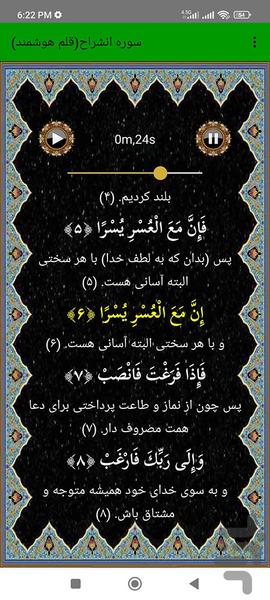 6:22 PM
4.5G
54
سوره انشراح(قلم هوشمند)
0m,24s
بلند کردیم. (۴)
فَإِنَّ مَعَ الْعُسْرِ يُسْرًا ﴿۵﴾
پس (بدان که به لطف خدا) با هر سختی
البته آسانی هست. (۵)
إِنَّ مَعَ الْعُسْرِ يُسْرًا ﴿۶﴾
و با هر سختی البته آسانی هست. (۶)
فَإِذَا فَرَغْتَ فَانْصَبْ ﴿۷﴾
پس چون از نماز و طاعت پرداختی برای دعا
همت مصروف دار. (۷)
وَإِلَى رَبِّكَ فَارْغَبْ ﴿۸﴾
و به سوی خدای خود همیشه متوجه و
مشتاق باش. (۸)